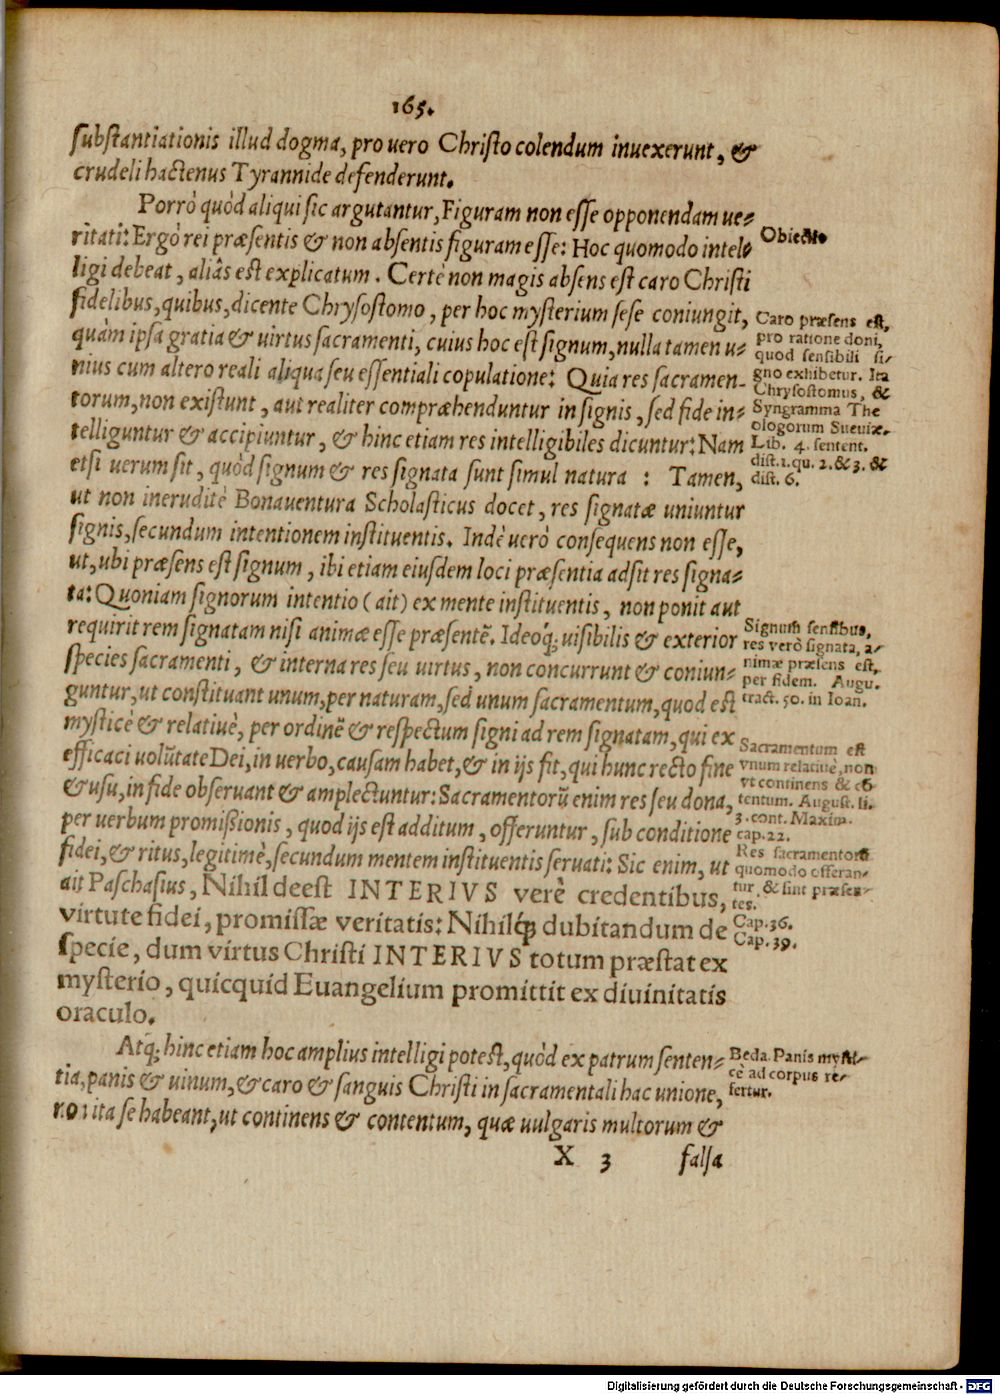 165.
substantiationis illud dogma, pro uero Christo colendum inuexerunt, &
crudeli hactenus Tyrannide defenderunt.
Porrò quòd aliqui sic argutantur, Figuram non esse opponendam ue-
ritati: Ergò rei præsentis & non absentis figuram esse: Hoc quomodo intel-
ligi debeat, aliâs est explicatum. Certè non magis absens est caro Christi
fidelibus, quibus, dicente Chrysostomo, per hoc mysterium sese coniungit,
quàm ipsa gratia & uirtus sacramenti, cuius hoc est signum, nulla tamen u-
nius cum altero reali aliqua seu essentiali copulatione: Quia res sacramen-
torum, non existunt, aut realiter compræhenduntur in signis, sed fide in-
telliguntur & accipiuntur, & hinc etiam res intelligibiles dicuntur: Nam
etsi uerum sit, quòd signum & res signata sunt simul natura : Tamen,
ut non ineruditè Bonauentura Scholasticus docet, res signatæ uniuntur
signis, secundum intentionem instituentis. Indè uerò consequens non esse,
ut, ubi præsens est signum, ibi etiam eiusdem loci præsentia adsit res signa-
ta: Quoniam signorum intentio (ait) ex mente instituentis, non ponit aut
requirit rem signatam nisi animæ esse præsentẽ. Ideoq́; uisibilis & exterior
species sacramenti, & interna res seu uirtus, non concurrunt & coniun-
guntur, ut constituant unum, per naturam, sed unum sacramentum, quod est
mysticè & relatiuè, per ordinẽ & respectum signi ad rem signatam, qui ex
efficaci uolũtate Dei, in uerbo, causam habet, & in ijs fit, qui hunc recto fine
& usu, in fide obseruant & amplectuntur: Sacramentorũ enim res seu dona,
per uerbum promißionis, quod ijs est additum, offeruntur, sub conditione
fidei, & ritus, legitimè, secundum mentem instituentis seruati: Sic enim, ut
ait Paschasius, Nihil deest INTERIVS verè credentibus,
virtute fidei, promissæ veritatis: Nihilq́; dubitandum de
specie, dum virtus Christi INTERIVS totum præstat ex
mysterio, quicquid Euangelium promittit ex diuinitatis
oraculo.
Atq́; hinc etiam hoc amplius intelligi potest, quòd ex patrum senten-
tia, panis & uinum, & caro & sanguis Christi in sacramentali hac unione,
non ita se habeant, ut continens & contentum, quæ uulgaris multorum &
X 3 falsa
Obiectio
Caro præsens est,
pro ratione doni,
quod sensibili si-
gno exhibetur. Ita
Chrysostomus, &
Syngramma The
ologorum Sueuiæ.
Lib. 4. sentent.
dist. 1. qu. 2. & 3. &
dist. 6.
Signum sensibus,
res verò signata, a-
nimæ præsens est,
per fidem. Augu.
tract. 50. in Ioan.
Sacramentum est
vnum relatiuè, non
vt continens & cõ
tentum. August. li.
3. cont. Maxim.
cap. 22.
Res sacramentorũ
quomodo offeran-
tur, & sint præsen-
tes.
Cap. 36.
Cap. 39.
Beda. Panis mysti-
cè ad corpus re-
fertur.
Digitalisierung gefördert durch die Deutsche Forschungsgemeinschaft - DFG